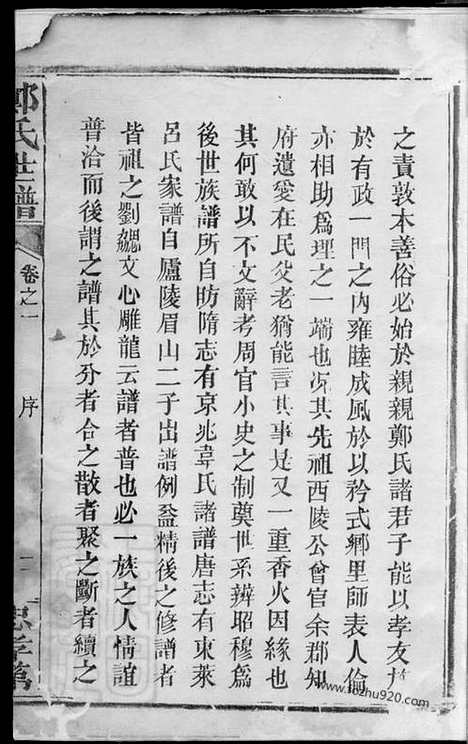 之責敦本善俗必始於親親鄭氏諸君子能以孝友施
於有政一門之內雍睦成風於以矜式鄉里師表人倫
亦相助爲理之一端也况其先祖西陵公曾官余郡知
府遺愛在民父老猶能言其事是又一重香火因緣也
其何敢以不文辭考周官小史之制奠世系辨昭穆爲
後世族譜所自昉隋志有京兆韋氏諸譜唐志有東萊
呂氏家譜自廬陵眉山二子出譜例益精後之修譜者
皆祖之劉勰文心雕龍云譜者普也必一族之人情誼
普洽而後謂之譜其於分者合之散者聚之斷者續之
鄭氏世譜
卷之一
序
二
忠孝第
www.fozhu920.com